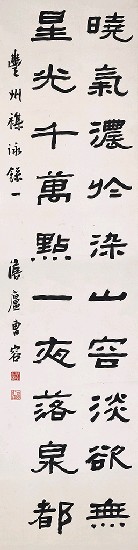 曉氣濃於染山容淡欲無
星光千萬點一夜落泉都
豐州襍詠錄一 澹廬曹容